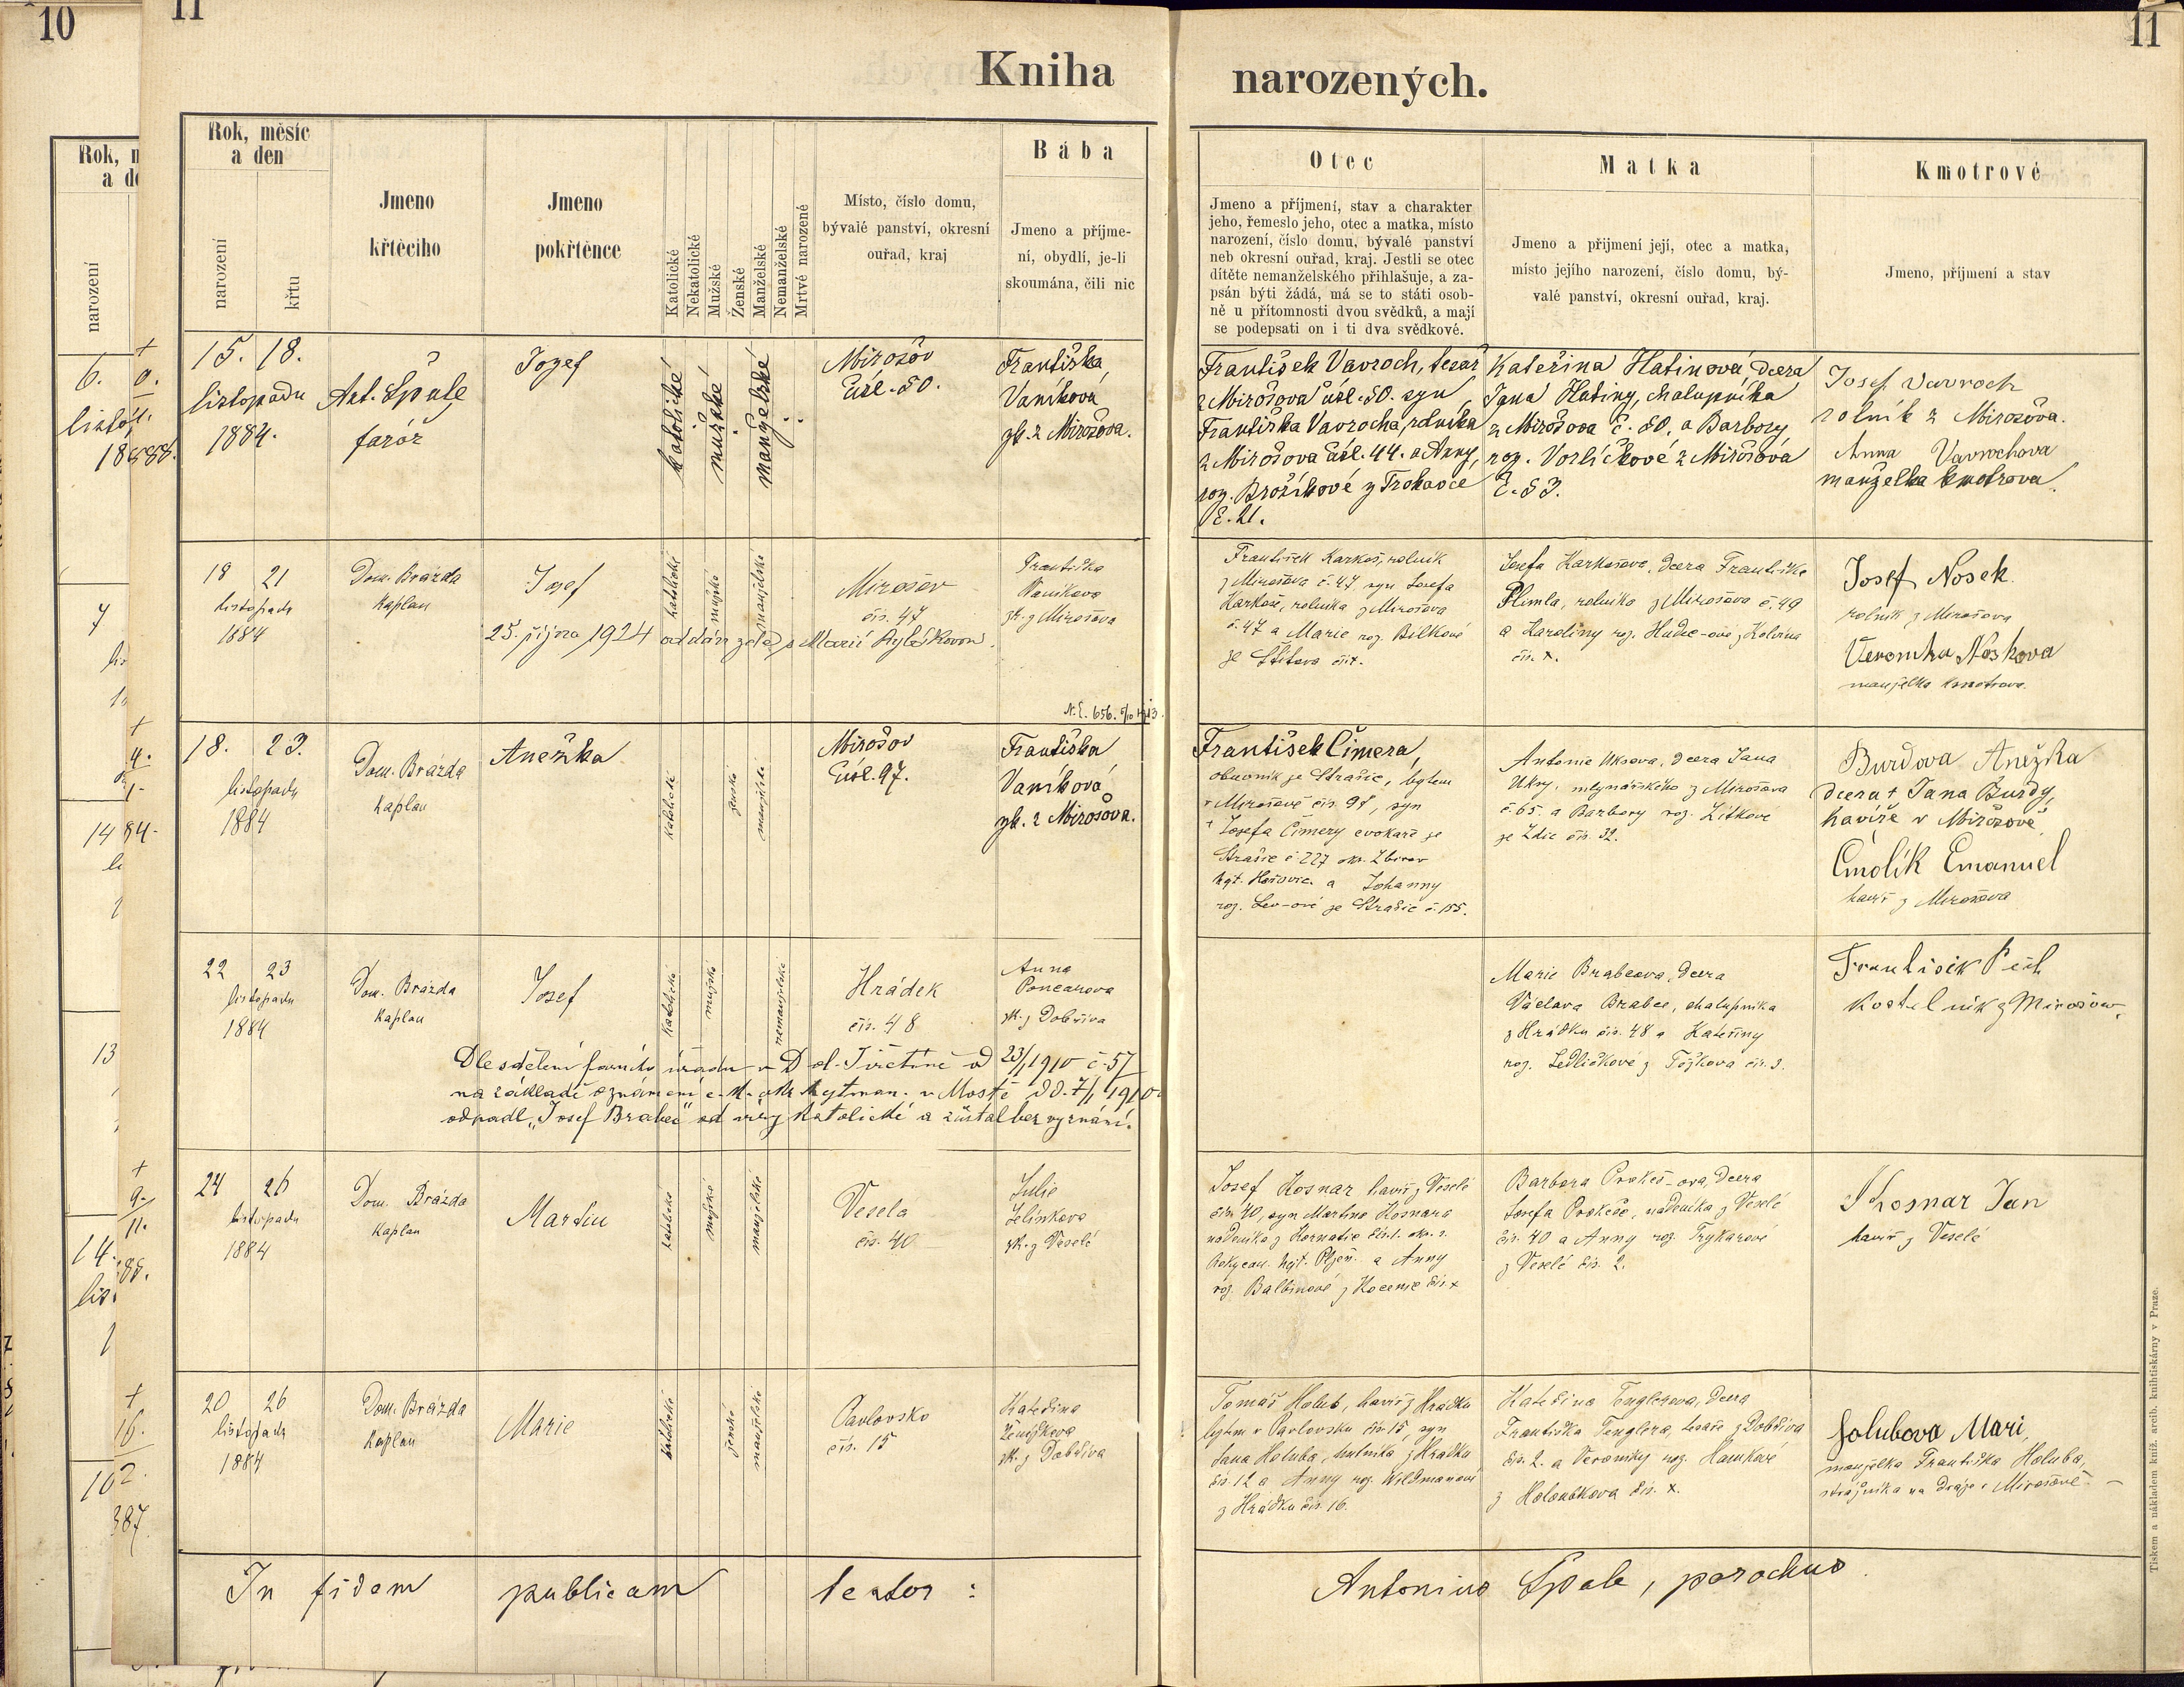 10
11
11
Kniha narozených.
Rok, měsíc
a den
narození
křtu
Jmeno
křtěcího
Jmeno
pokřtěnce
Katolické
Nekatolické
Mužské
Ženské
Manželské
Nemanželské
Mrtvé narozené
Místo, číslo domu,
bývalé panství, okresní
ouřad, kraj
Bába
Jmeno a příjme-
ní, obydlí, je-li
skoumána, čili nic
Otec
Jmeno a příjmení, stav a charakter
jeho, řemeslo jeho, otec a matka, místo
narození, číslo domu, bývalé panství
neb okresní ouřad, kraj. Jestli se otec
dítěte nemanželského přihlašuje, a za-
psán býti žádá, má se to státi osob-
ně u přítomnosti dvou svědků, a mají
se podepsati on i ti dva svědkové.
Matka
Jmeno a přijmení její, otec a matka,
místo jejího narození, číslo domu, bý-
valé panství, okresní ouřad, kraj.
Kmotrové
Jmeno, příjmení a stav
15. 18.
listopadu
1884.
Ant. Špale
farář
Josef
katolické
mužské
manželské
Mirošov
čísl. 50.
Františka
Vaníková
zk. z Mirošova.
František Vavroch, tesař
z Mirošova čísl. 50. syn
Františka Vavrocha, rolníka
z Mirošova čísl. 44. a Anny,
roz. Brožíkové z Trokavce
č. 21.
Kateřina Hatinova dcera
Jana Hatiny, chalupníka
z Mirošova č. 50. a Barbory
roz. Vorlíčkové z Mirošova
č. 53.
Josef Vavroch
rolník z Mirošova.
Anna Vavrochova
manželka kmotrova.
18 21
listopadu
1884
Dom. Brázda
kaplan
Josef
katolické
mužské
manželské
Mirošov
čís. 47
Františka
Vaníkova
zk. z Mirošova
25. října 1924 oddán zde s Marií
František Karkoš, rolník
z Mirošova č. 47 syn Josefa
Karkoše, rolníka z Mirošova
č. 47 a Marie roz. Bílkové
ze Štítova čís.
Josefa Karkošova, dcera Františka
Plimla, rolníka z Mirošova č. 49
a Karoliny roz. z Kolvína
čís. x.
Josef Nosek
rolník z Mirošova
Veronika Noskova
manželka kmotrova.
N. E. 656.
18. 23.
listopadu
1884
Dom. Brázda
kaplan
Anežka
katolické
ženské
manželské
Mirošov
čísl. 97.
Františka
Vaníková
zk. z Mirošova.
František Čimera,
obuvník ze Strašic, bytem
v Mirošově čís. 97, syn
† Josefa Čimery cvokaře ze
Strašic č. 227 okr. Zbirov
hejt. Hořovic. a Johanny
roz. Lev-ové ze Strašic č. 155.
Antonie Uksova, dcera Jana
Uksy, mlynářského z Mirošova
č. 65. a Barbory roz. Zítkové
ze Zdic čís. 32.
Burdova Anežka
dcera † Jana Burdy,
havíře v Mirošově.
Cmolík Emanuel
havíř z Mirošova
22 23
listopadu
1884
Dom. Brázda
kaplan
Josef
katolické
mužské
nemanželské
Hrádek
čís. 48
Anna
Poncarova
zk. z Dobříva
Dle sdělení farního úřadu v Dol. Jiřetíně od 23/1 1910 č. 57
na základě oznámení c. k. okr. hejtman. v Mostě dd. 7/1 1910
odpadl „Josef Brabec“ od víry katolické a zůstal bez vyznání.
Marie Brabcova, dcera
Václava Brabce, chalupníka
z Hrádku čís. 48 a Kateřiny
roz. Sedláčkové z Těškova čís. 3.
František Pech
kostelník z Mirošova
24 26
listopadu
1884
Dom. Brázda
kaplan
Martin
katolické
mužské
manželské
Vesela
čís. 40
Julie
Jelínkova
zk. z Veselé
Josef Kosnar havíř z Veselé
čís. 40, syn Martina Kosnara
nádeníka z Kornatic čís. 1. okr. s.
Rokycan. hejt. Plzeň. a Anny
roz. Balbínové z Kocenic čís. x
Barbora Prokeš-ova, dcera
Josefa Prokeše, nádeníka z Veselé
čís. 40 a Anny roz. Trykarové
z Veselé čís. 2.
Khosnar Jan
havíř z Veselé
20 26
listopadu
1884
Dom. Brázda
kaplan
Marie
katolické
ženské
manželské
Pavlovsko
čís. 15
Kateřina
Ženíškova
zk. z Dobříva
Tomáš Holub, havíř z Hrádku
bytem v Pavlovsku čís. 15, syn
Jana Holuba, z Hrádku
čís. 12 a Anny roz. Wildmanové
z Hrádku čís. 16.
Kateřina Tenglerova, dcera
Františka Tenglera, tesaře z Dobříva
čís. 2. a Veroniky roz. Hankové
z Holoubkova čís. x.
Holubova Mari,
manželka Františka Holuba,
strážníka na dráze v Mirošově
In fidem publicam testor :
Antonius Špale, parochus
Tiskem a nákladem kníž. arcib. knihtiskárny v Praze.